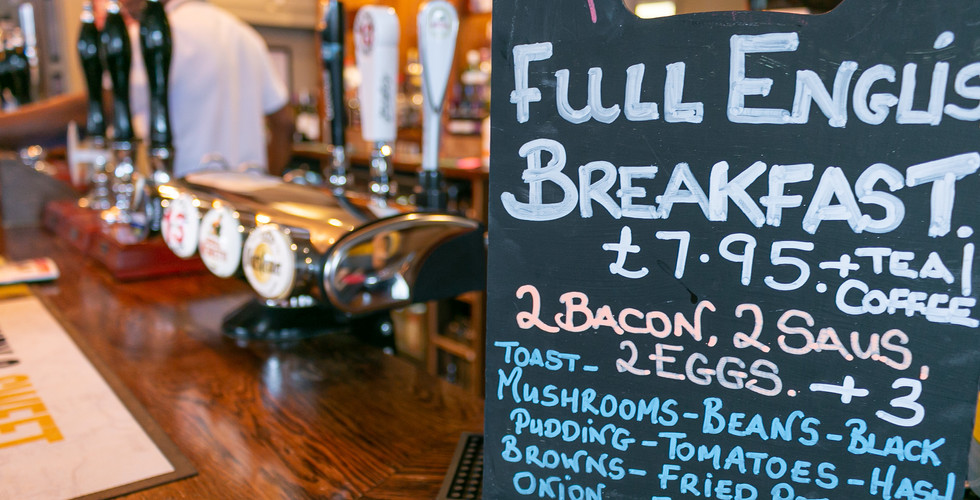 FULL ENGLIS
BREAKFAST.
£7.95. + TEA/
COFFEE
2 BACON, 2 SAUS,
2 EGGS. + 3
TOAST-
MUSHROOMS-BEANS-BLACK
PUDDING-TOMATOES-HASH
BROWNS-FRIED
ONION
GUEST